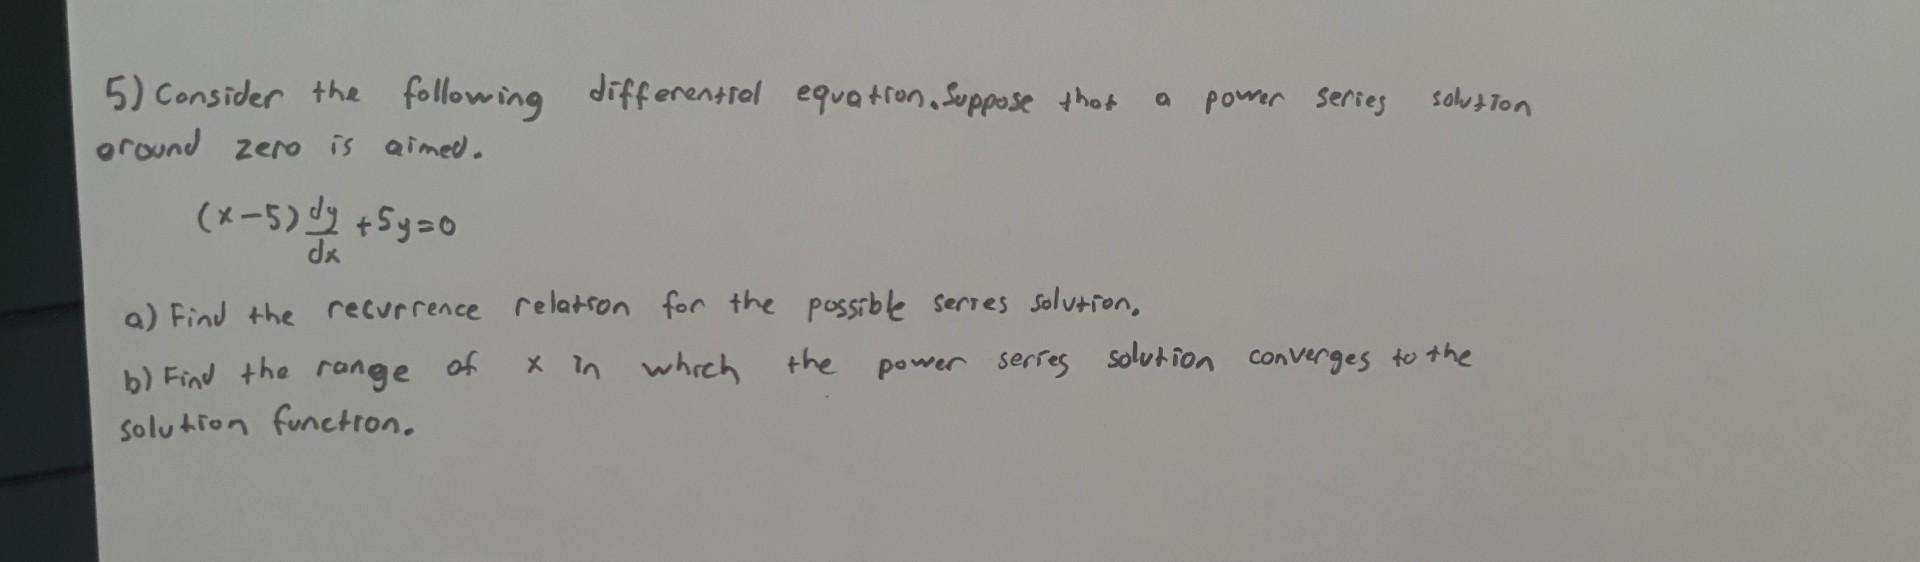 5) Consider the following differential equation. Suppose that a power series solution
around zero is aimed.
(x-5) dy/dx +5y=0
a) Find the recurrence relation for the possible series solution.
b) Find the range of x in which the power series solution converges to the
solution function.